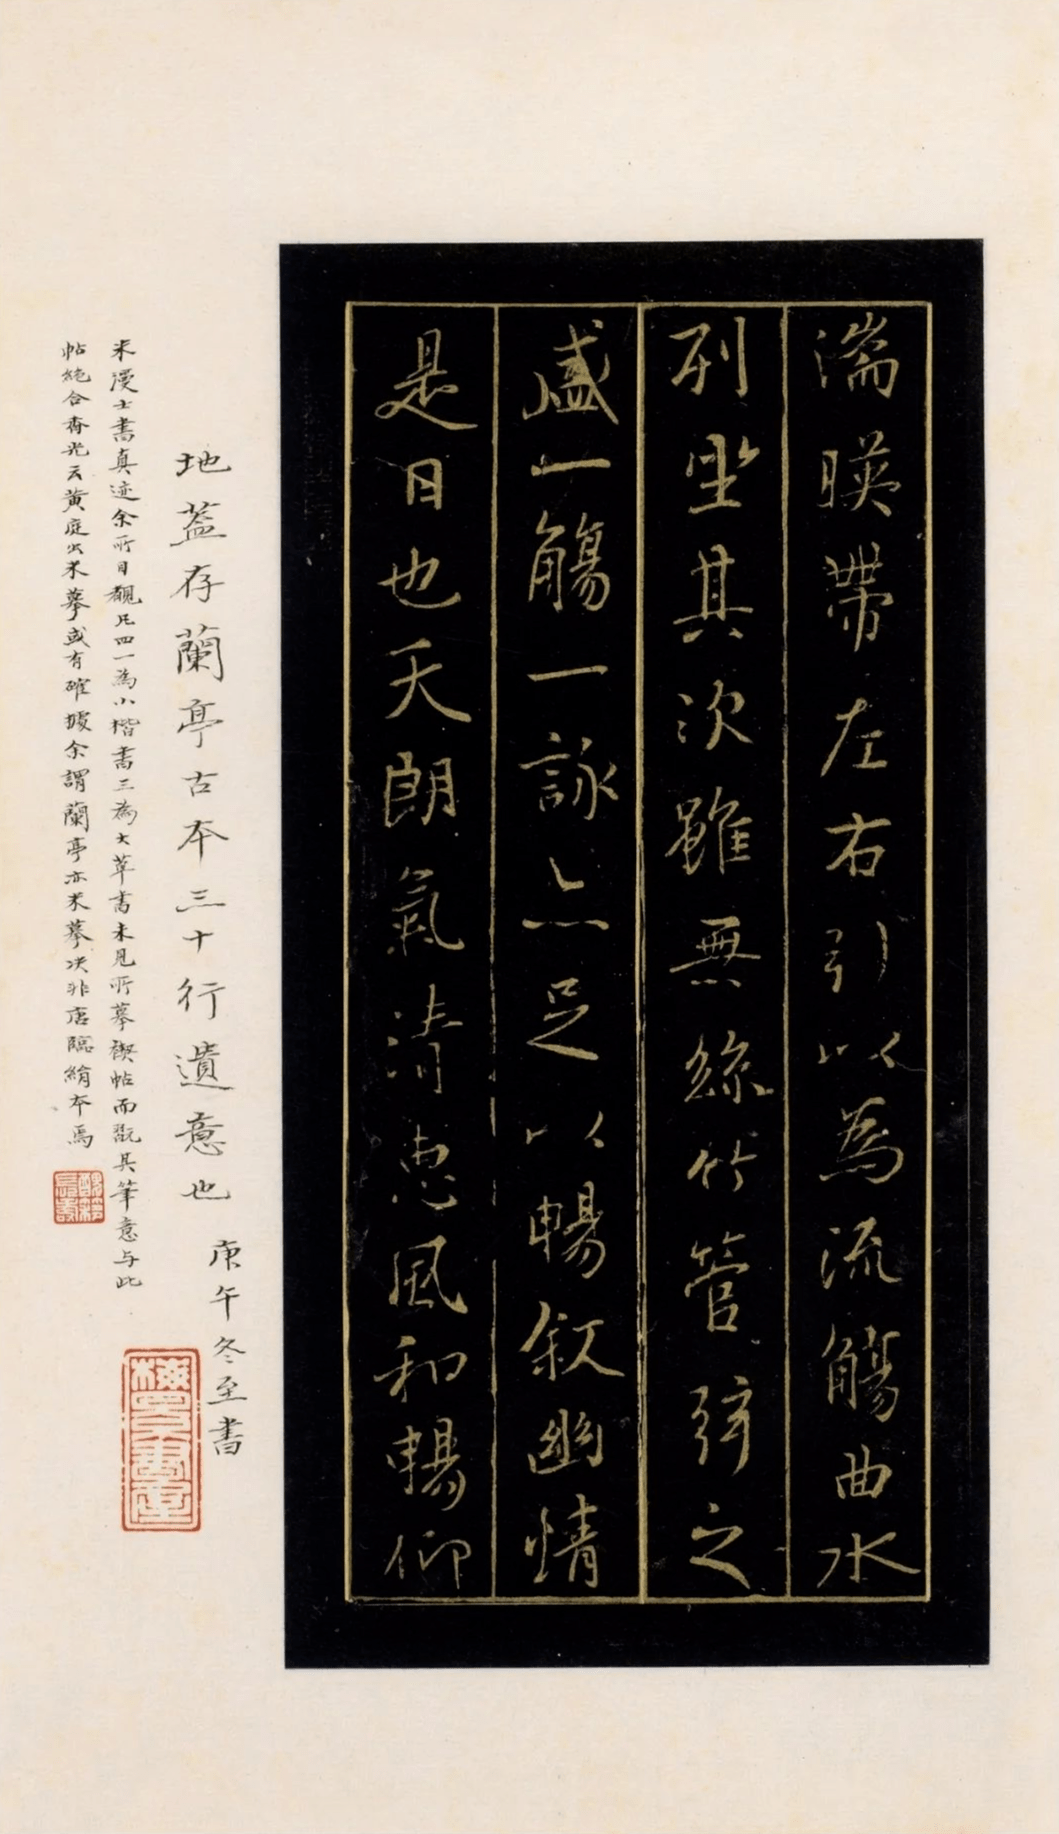 湍暎帶左右引以為流觴曲水
列坐其次雖無絲竹管弦之
盛一觴一詠亦足以暢敘幽情
是日也天朗氣清惠風和暢仰
地蓋存蘭亭古本三十行遺意也
庚午冬至書
米漫士書真迹余所目覩凡四一為小楷書三為大草書未見所摹禊帖而翫其筆意与此
帖絶合香光云黃庭出米摹或有確據余謂蘭亭亦米摹决非唐臨絹本焉